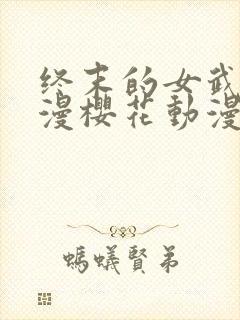 终末的女武
漫樱花動漫
螞蟻賢弟